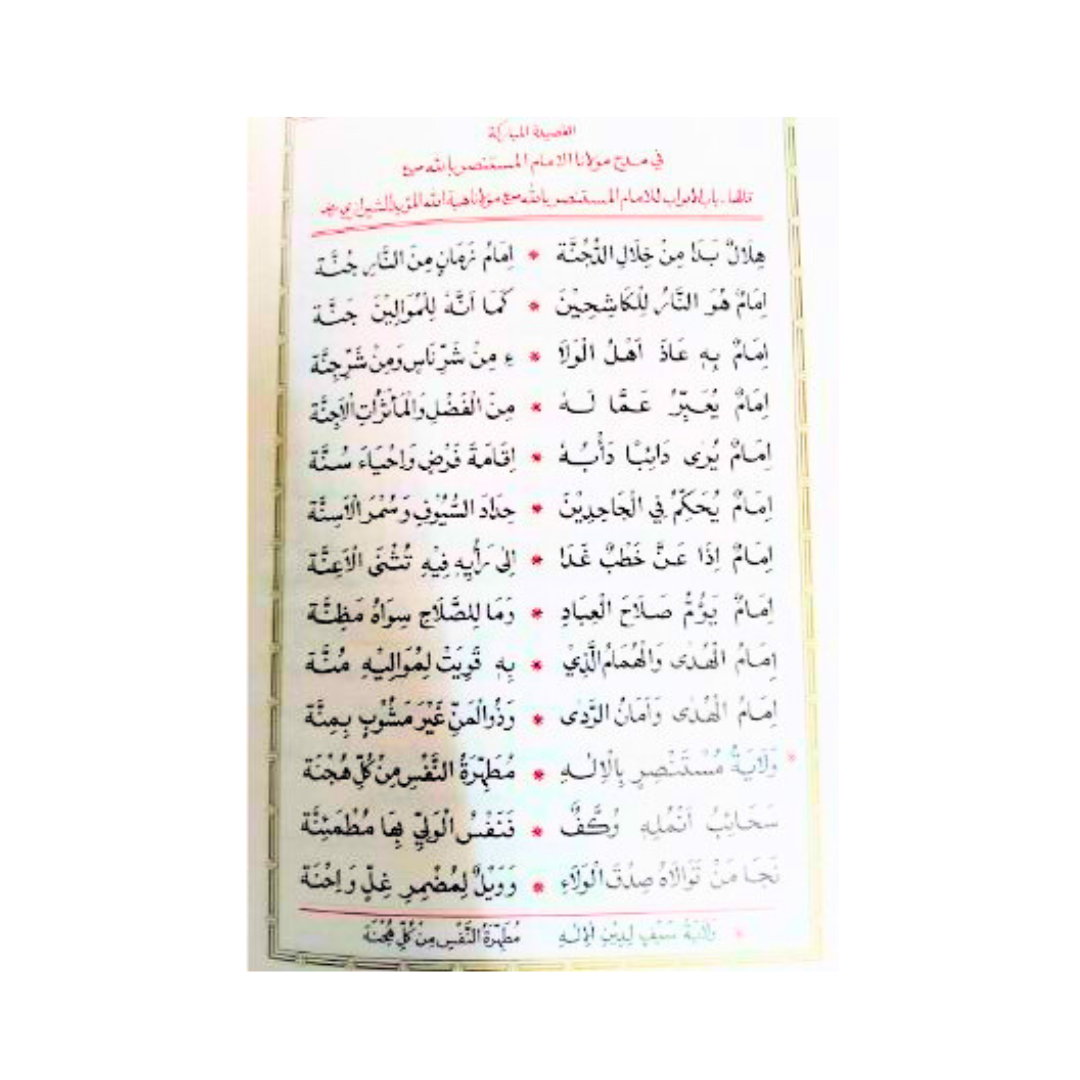 القصيدة المباركة
في مدح مولانا الامام المستنصر بالله صع
قالها باب الابواب للامام المستنصر بالله صع مولانا هبة الله المؤيد الشيرازي رض
هِلَالٌ بَدَا مِنْ خِلَالِ الدُّجُنَّة * اِمَامُ زَمَانٍ مِنَ النَّارِ جُنَّة
اِمَامٌ هُوَ النَّارُ لِلْكَاشِحِيْنَ * كَمَا اَنَّهُ لِلْمُوَالِيْنَ جَنَّة
اِمَامٌ بِهِ عَاذَ اَهْلُ الْوَلَا * ءِ مِنْ شَرِّ نَاسٍ وَمِنْ شَرِّ جِنَّة
اِمَامٌ يُعَبِّرُ عَمَّا لَهُ * مِنَ الْفَضْلِ وَالْمَأْثُرَاتِ الْاَجِنَّة
اِمَامٌ يُرٰى دَائِبًا دَأْبُهُ * اِقَامَةَ فَرْضٍ وَاِحْيَاءَ سُنَّة
اِمَامٌ يُحَكِّمُ فِي الْجَاحِدِيْنَ * حِدَادَ السُّيُوْفِ وَسُمْرَ الْاَسِنَّة
اِمَامٌ اِذَا عَنَّ خَطْبٌ غَدَا * اِلٰى رَأْيِهِ فِيْهِ تُثْنَى الْاَعِنَّة
اِمَامٌ يَؤُمُّ صَلَاحَ الْعِبَادِ * وَمَا لِلصَّلَاحِ سِوَاهُ مَظِنَّة
اِمَامُ الْهُدٰى وَالْهُمَامُ الَّذِيْ * بِهِ قَوِيَتْ لِمُوَالِيْهِ مُنَّة
اِمَامُ الْهُدٰى وَاَمَانُ الرَّدٰى * وَذُو الْمَنِّ غَيْرَ مَشُوْبٍ بِمِنَّة
* وَلَايَةُ مُسْتَنْصِرٍ بِالْاِلٰهِ * مُطَهِّرَةُ النَّفْسِ مِنْ كُلِّ هُجْنَة
سَحَائِبُ اَنْمُلِهِ وُكَّفٌ * فَنَفْسُ الْوَلِيِّ بِهَا مُطْمَئِنَّة
نَجَا مَنْ تَوَالَاهُ صِدْقَ الْوَلَاءِ * وَوَيْلٌ لِمُضْمِرِ غِلٍّ وَاِحْنَة
* وَلَايَةُ سَيْفٍ لِدِيْنِ الْاِلٰهِ مُطَهِّرَةُ النَّفْسِ مِنْ كُلِّ هُجْنَة